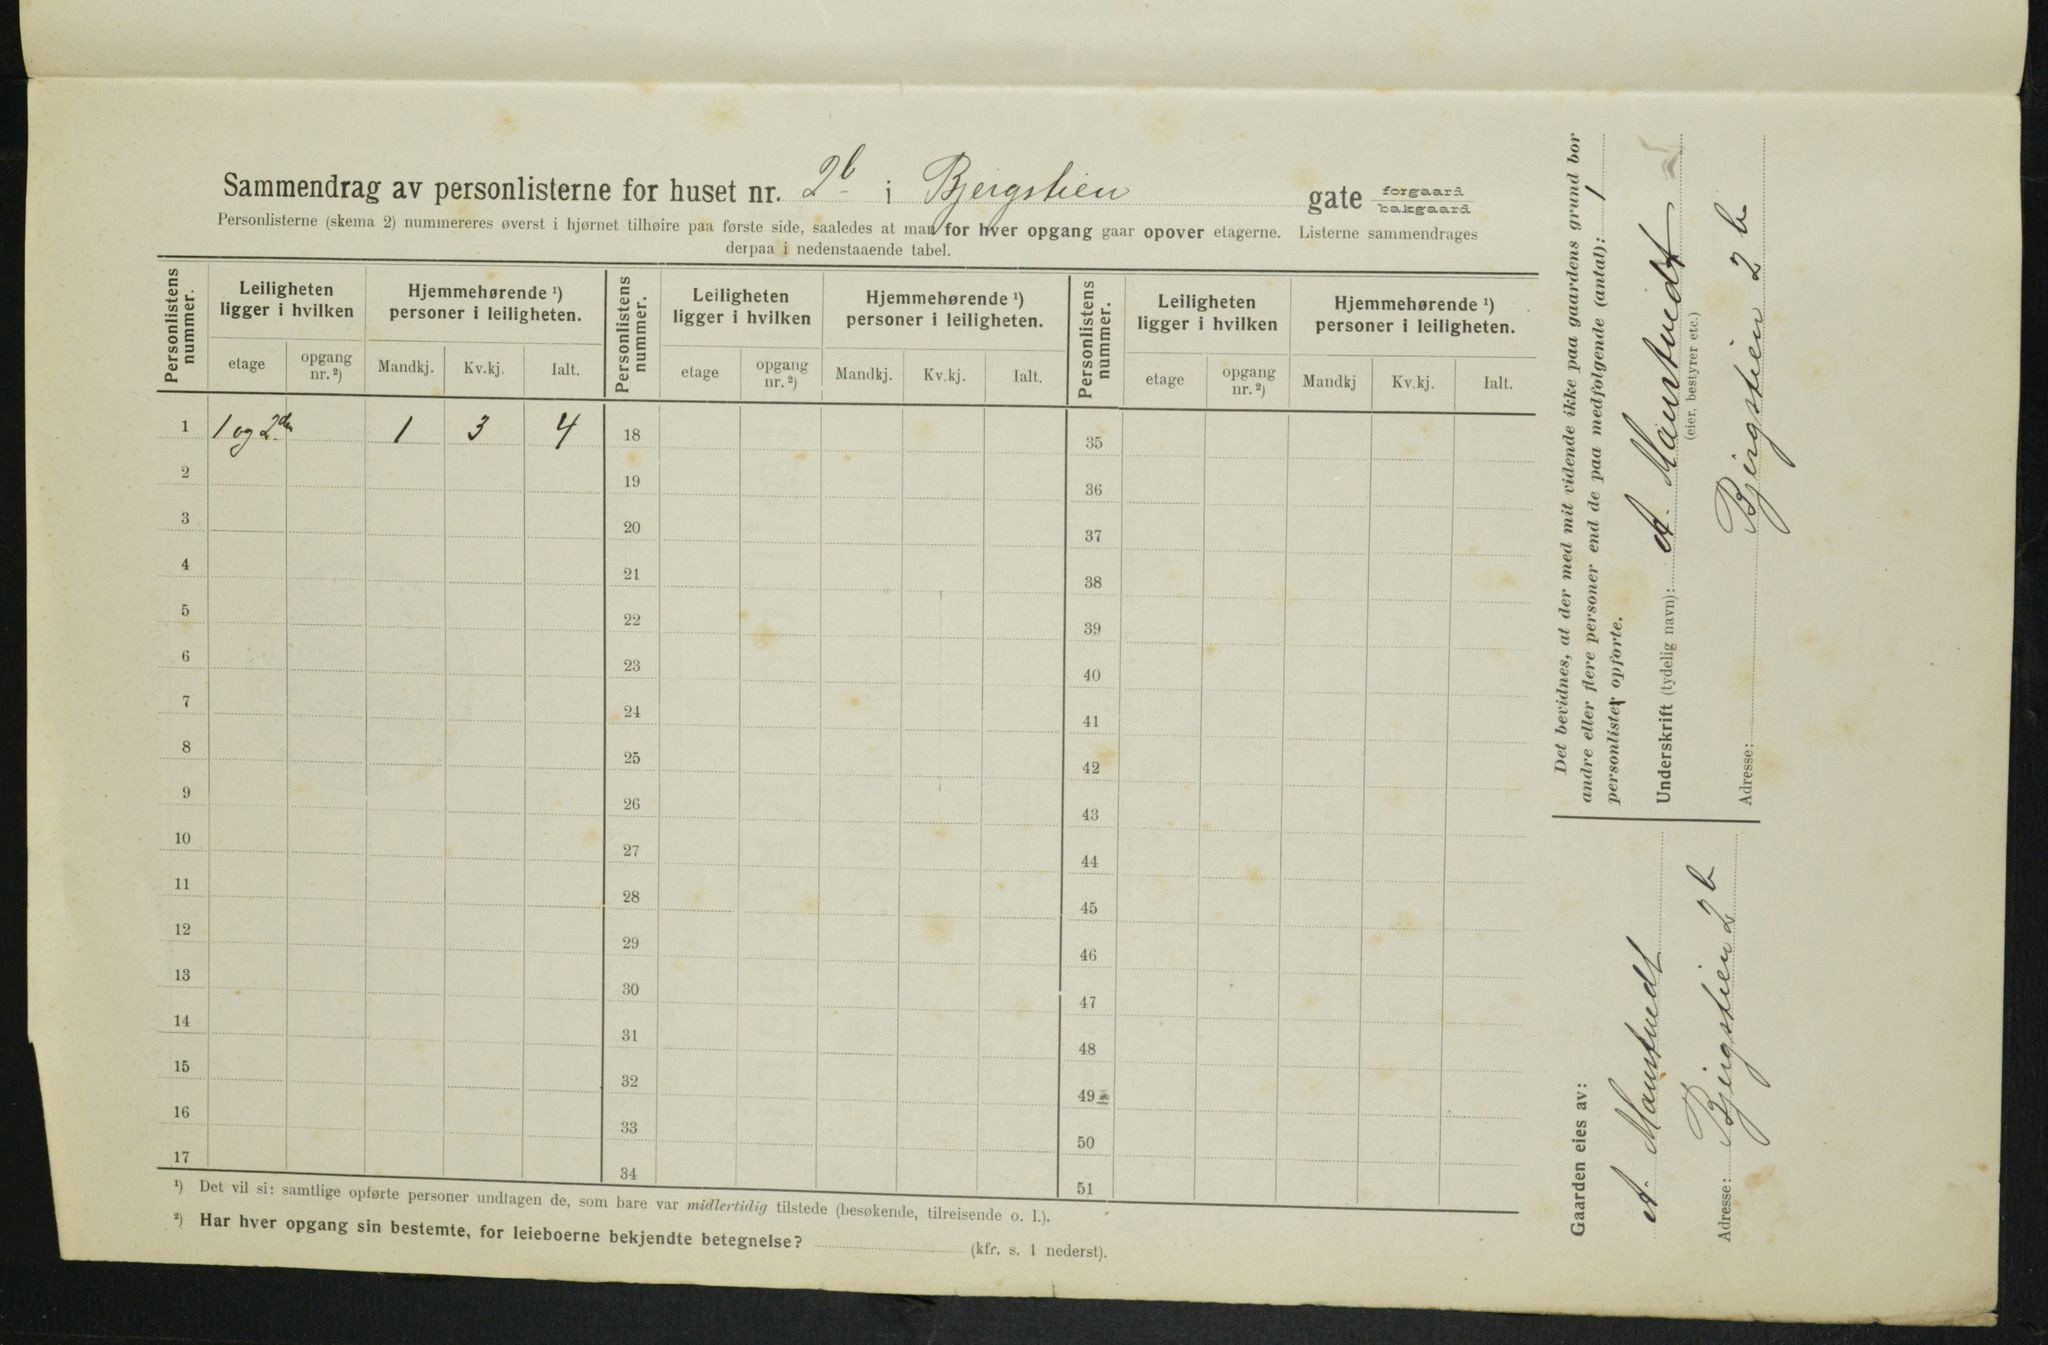 Sammendrag av personlisterne for huset nr. 2b i Bjergstien gate forgaard bakgaard
Personlisterne (skema 2) nummereres øverst i hjørnet tilhøire paa første side, saaledes at man for hver opgang gaar opover etagerne. Listerne sammendrages
derpaa i nedenstaaende tabel.
Personlistens nummer. Leiligheten ligger i hvilken Hjemmehørende ¹) personer i leiligheten. Personlistens nummer. Leiligheten ligger i hvilken Hjemmehørende ¹) personer i leiligheten. Personlistens nummer. Leiligheten ligger i hvilken Hjemmehørende ¹) personer i leiligheten.
etage opgang nr. ²) Mandkj. Kv.kj. Ialt. etage opgang nr. ²) Mandkj. Kv.kj. Ialt. etage opgang nr. ²) Mandkj Kv.kj. Ialt.
1 1 og 2den 1 3 4 18 35
2 19 36
3 20 37
4 21 38
5 22 39
6 23 40
7 24 41
8 25 42
9 26 43
10 27 44
11 28 45
12 29 46
13 30 47
14 31 48
15 32 49
16 33 50
17 34 51
¹) Det vil si: samtlige opførte personer undtagen de, som bare var midlertidig tilstede (besøkende, tilreisende o. l.).
²) Har hver opgang sin bestemte, for leieboerne bekjendte betegnelse? (kfr. s. 1 nederst).
Det bevidnes, at der med mit vidende ikke paa gaardens grund bor
andre eller flere personer end de paa medfølgende (antal): 1
personlister opførte.
Underskrift (tydelig navn): A.
(eier, bestyrer etc.)
Adresse: Bjergstien 2 b
Gaarden eies av:
A.
Adresse: Bjergstien 2 b